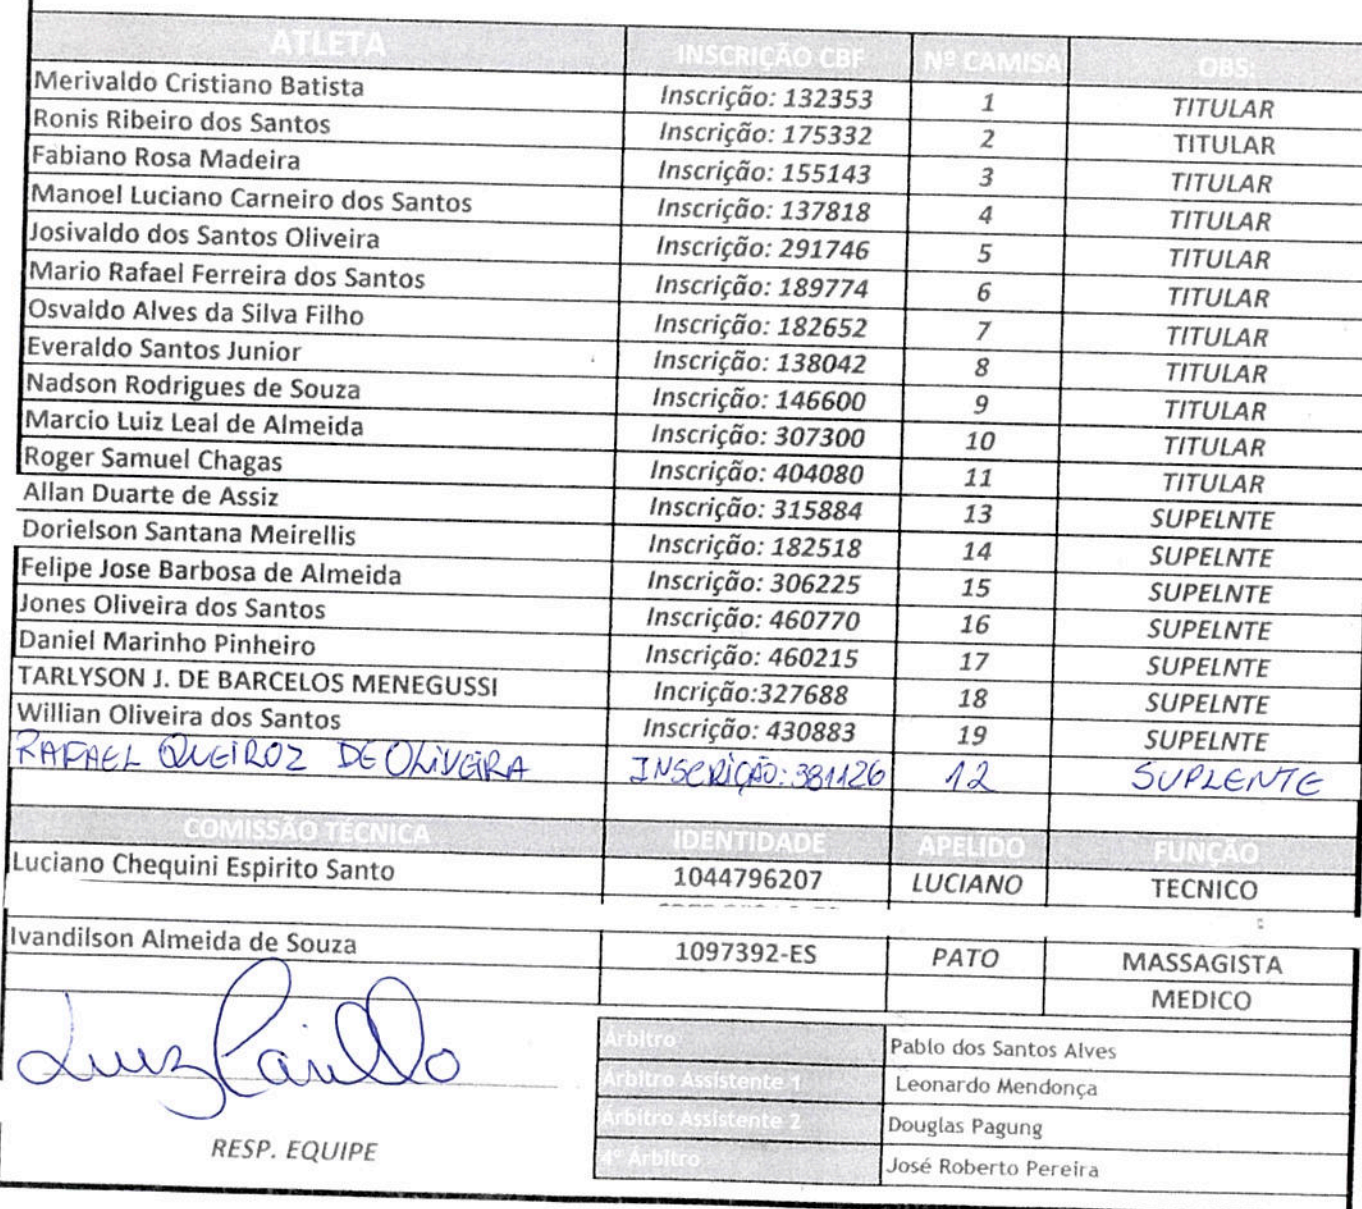 ATLETA INSCRIÇÃO CBF Nº CAMISA OBS:
Merivaldo Cristiano Batista Inscrição: 132353 1 TITULAR
Ronis Ribeiro dos Santos Inscrição: 175332 2 TITULAR
Fabiano Rosa Madeira Inscrição: 155143 3 TITULAR
Manoel Luciano Carneiro dos Santos Inscrição: 137818 4 TITULAR
Josivaldo dos Santos Oliveira Inscrição: 291746 5 TITULAR
Mario Rafael Ferreira dos Santos Inscrição: 189774 6 TITULAR
Osvaldo Alves da Silva Filho Inscrição: 182652 7 TITULAR
Everaldo Santos Junior Inscrição: 138042 8 TITULAR
Nadson Rodrigues de Souza Inscrição: 146600 9 TITULAR
Marcio Luiz Leal de Almeida Inscrição: 307300 10 TITULAR
Roger Samuel Chagas Inscrição: 404080 11 TITULAR
Allan Duarte de Assiz Inscrição: 315884 13 SUPELNTE
Dorielson Santana Meirellis Inscrição: 182518 14 SUPELNTE
Felipe Jose Barbosa de Almeida Inscrição: 306225 15 SUPELNTE
Jones Oliveira dos Santos Inscrição: 460770 16 SUPELNTE
Daniel Marinho Pinheiro Inscrição: 460215 17 SUPELNTE
TARLYSON J. DE BARCELOS MENEGUSSI Incrição:327688 18 SUPELNTE
Willian Oliveira dos Santos Inscrição: 430883 19 SUPELNTE
RAFAEL QUEIROZ DE OLIVEIRA INSCRIÇÃO: 381126 12 SUPLENTE
COMISSÃO TÉCNICA IDENTIDADE APELIDO FUNÇÃO
Luciano Chequini Espirito Santo 1044796207 LUCIANO TECNICO
Ivandilson Almeida de Souza 1097392-ES PATO MASSAGISTA
MEDICO
Luiz
RESP. EQUIPE
Árbitro Pablo dos Santos Alves
Árbitro Assistente 1 Leonardo Mendonça
Árbitro Assistente 2 Douglas Pagung
4º Árbitro José Roberto Pereira